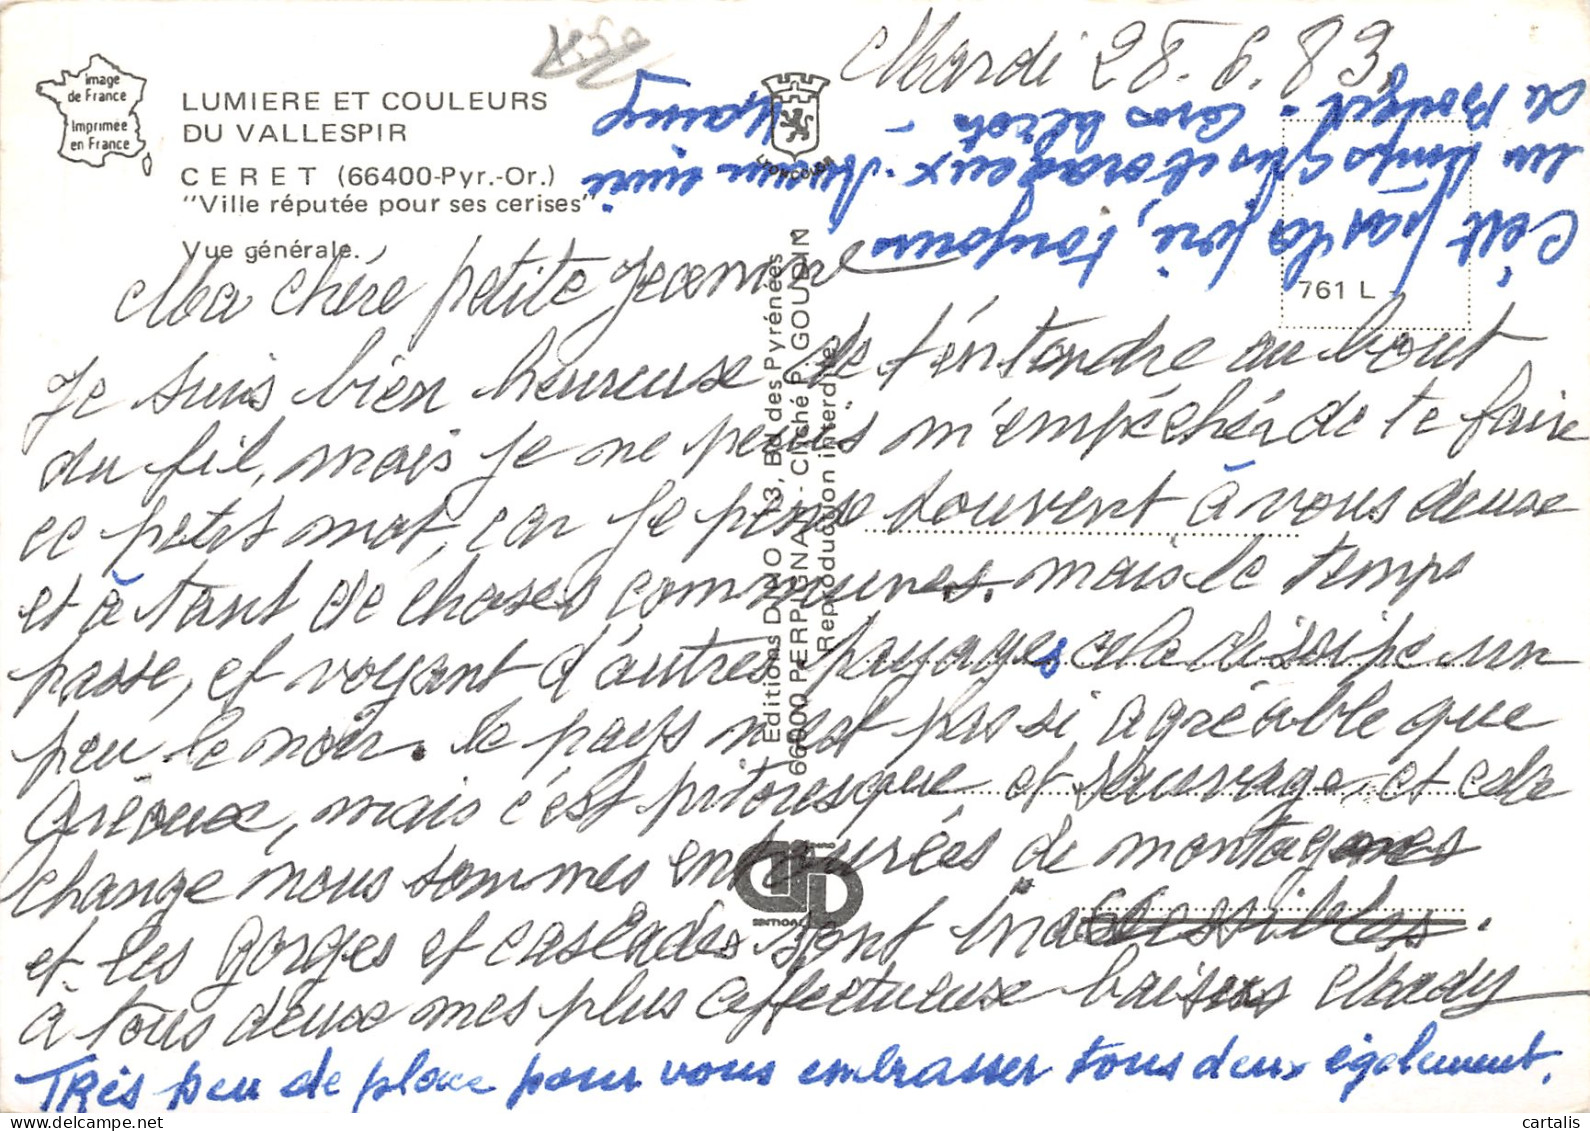 image
de France
Imprimée
en France
LUMIERE ET COULEURS
DU VALLESPIR
CERET (66400-Pyr.-Or.)
"Ville réputée pour ses cerises"
Vue générale.
LYONCOLOR
761 L
Editions DINO - 3, Bd des Pyrénées
66000 PERPIGNAN - Cliché P. GOUDIN
Reproduction interdite
EDITIONS
Mardi 28.6.83.
Ma chère petite Jeannine
Je suis bien heureuse de t'entendre au bout
du fil, mais je ne peux m'empéchér de te faire
ce petit mot, car je pense souvent à vous deux
et à tant de choses communes. mais le temps
passe, et voyant d'autres payages cela dissipe un
peu le noir. le pays n'est pas si agréable que
Gréoux, mais c'est pitoresque et sauvage et cela
change nous sommes entourées de montagnes
et les gorges et cascades sont inaccessibles.
a tous deux mes plus affectueux baisers Mady
Très peu de place pour vous embrasser tous deux également.
C'est pas la joie, toujours
un temps gris et orageux.
du Bouget - Gros bécots -